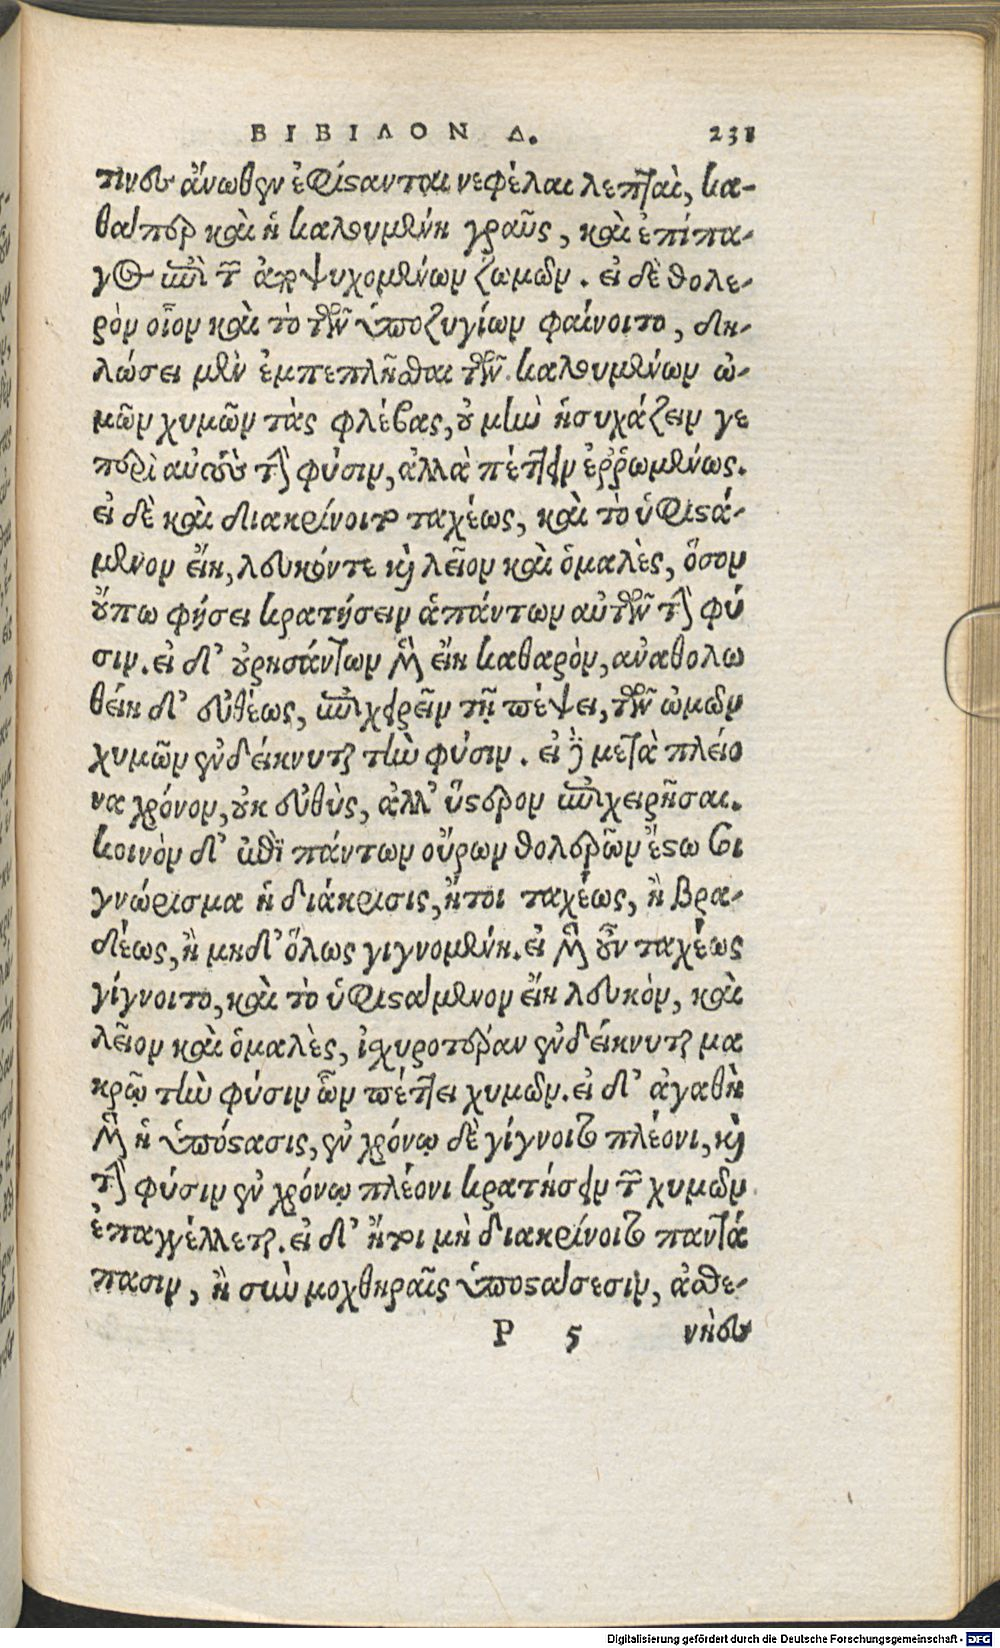 ΒΙΒΙΛΟΝ Δ. 231
πινευ ἄνωθεν ἐφίσανται νεφέλαι λεπταὶ, κα-
θάπερ καὶ ἡ καλουμένη γραῦς, καὶ ἐπίπα-
γος ἐπὶ τῶν ἀποψυχομένων ζωμῶν. εἰ δὲ θολε-
ρὸν οἷον καὶ τὸ τῶν ὑποζυγίων φαίνοιτο, δη-
λώσει μὲν ἐμπεπλῆσθαι τῶν καλουμένων ὠ-
μῶν χυμῶν τὰς φλέβας, οὐ μὴν ἡσυχάζειν γε
περὶ αὐτοὺς τὴν φύσιν, ἀλλὰ πέττειν ἐῤῥωμένως.
εἰ δὲ καὶ διακρίνοιτο ταχέως, καὶ τὸ ὑφιστά-
μενον εἴη, λευκόντε καὶ λεῖον καὶ ὁμαλὲς, ὅσον
οὔπω φήσει κρατήσειν ἁπάντων αὐτῶν τὴν φύ
σιν. εἰ δ' οὐρησάντων μὲν εἴη καθαρὸν, ἀναθολω
θείη δ' εὐθέως, ἐπιχειρεῖν τῇ πέψει, τῶν ὠμῶν
χυμῶν ἐνδείκνυται τὴν φύσιν. εἰ δὲ μετὰ πλείο
να χρόνον, οὐκ εὐθὺς, ἀλλ' ὕστερον ἐπιχειρῆσαι.
κοινὸν δ' ἐπὶ πάντων οὔρων θολερῶν ἔστω σοι
γνώρισμα ἡ διάκρισις, ἤτοι ταχέως, ἢ βρα-
δέως, ἢ μηδ' ὅλως γιγνομένη. εἰ μὲν οὖν ταχέως
γίγνοιτο, καὶ τὸ ὑφιστάμενον εἴη λευκὸν, καὶ
λεῖον καὶ ὁμαλὲς, ἰσχυροτέραν ἐνδείκνυται μα
κρῷ τὴν φύσιν ὧν πέττει χυμῶν. εἰ δ' ἀγαθὴ
μὲν ἡ ὑπόστασις, ἐν χρόνῳ δὲ γίγνοιτο πλέονι, καὶ
τὴν φύσιν ἐν χρόνῳ πλέονι κρατήσειν τῶν χυμῶν
ἐπαγγέλλεται. εἰ δ' ἤτοι μὴ διακρίνοιτο παντά
πασιν, ἢ σὺν μοχθηραῖς ὑποστάσεσιν, ἀσθε-
P 5 νὴς